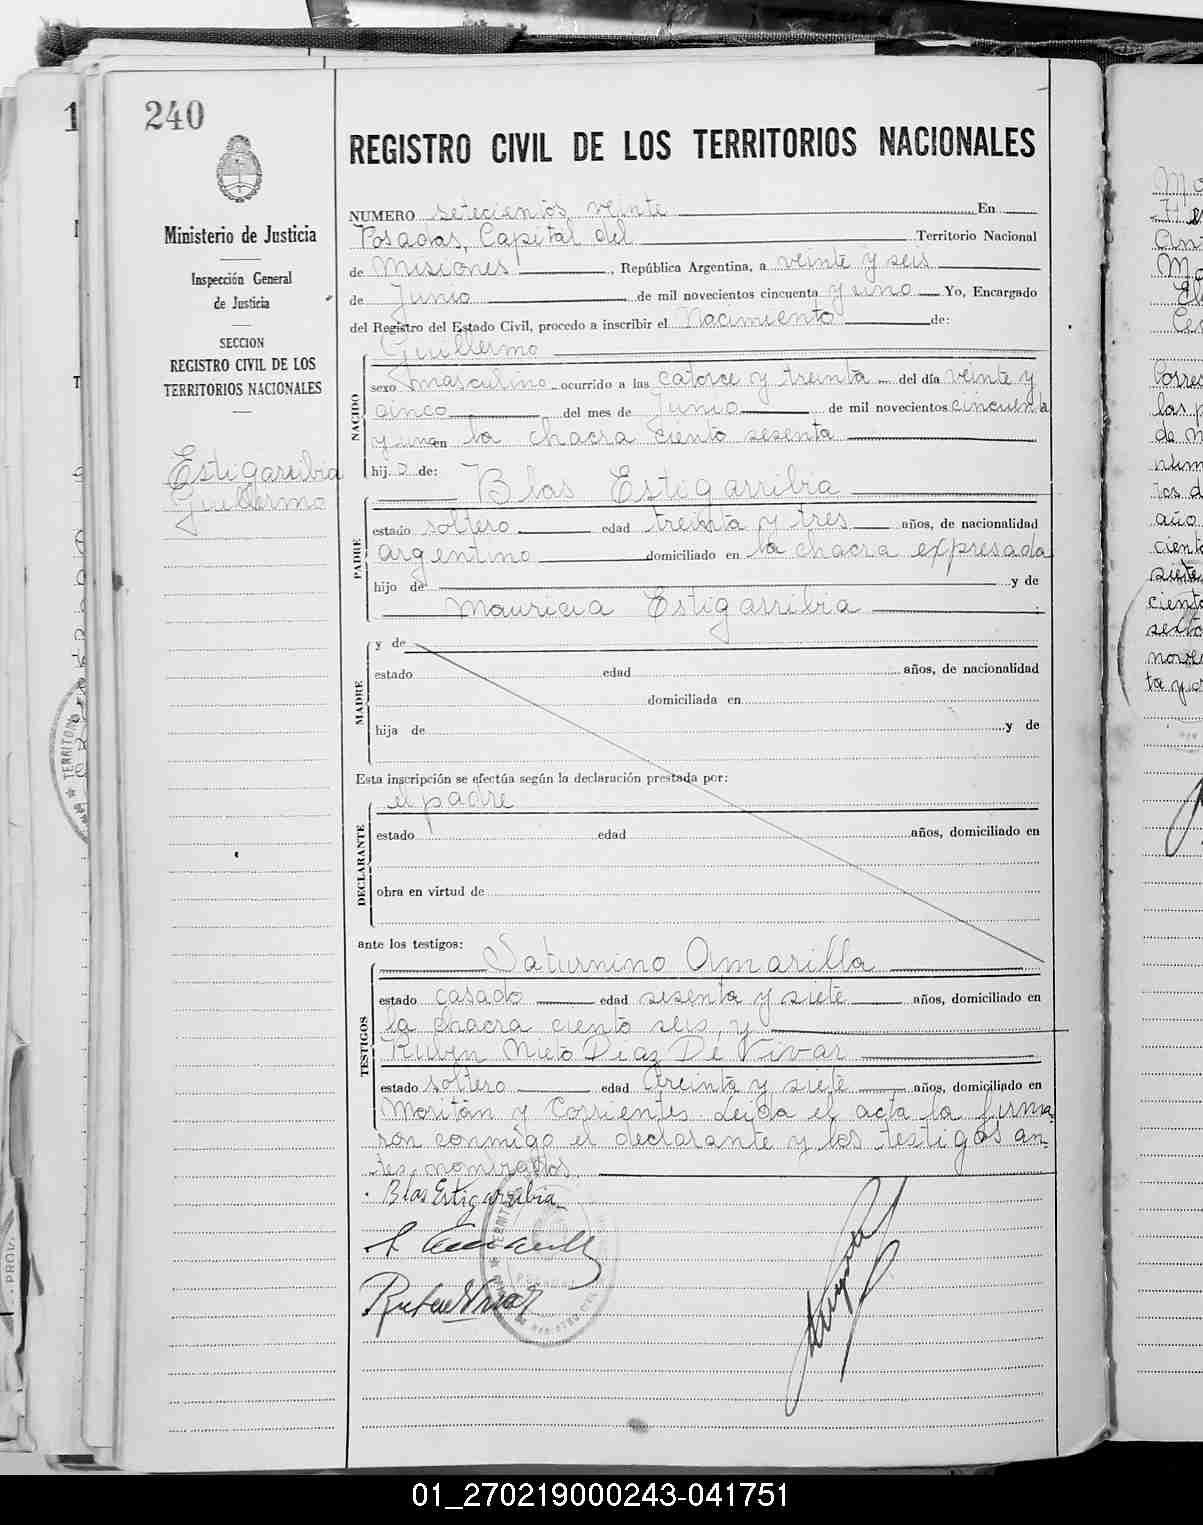 240
Ministerio de Justicia
Inspección General
de Justicia
SECCION
REGISTRO CIVIL DE LOS
TERRITORIOS NACIONALES
Estigarribia
Guillermo
REGISTRO CIVIL DE LOS TERRITORIOS NACIONALES
NUMERO setecientos veinte En
Posadas, Capital del Territorio Nacional
de Misiones, República Argentina, a veinte y seis
de Junio de mil novecientos cincuenta y uno Yo, Encargado
del Registro del Estado Civil, procedo a inscribir el Nacimiento de:
Guillermo
NACIDO
sexo masculino ocurrido a las catorce y treinta del día veinte y
cinco del mes de Junio de mil novecientos cincuenta
y uno en la chacra ciento sesenta
hij o de:
Blas Estigarribia
PADRE
estado soltero edad treinta y tres años, de nacionalidad
argentino domiciliado en la chacra expresada
hijo de y de
Mauricia Estigarribia
MADRE
y de
estado edad años, de nacionalidad
domiciliada en
hija de y de
Esta inscripción se efectúa según la declaración prestada por:
el padre
DECLARANTE
estado edad años, domiciliado en
obra en virtud de
ante los testigos:
Saturnino Amarilla
TESTIGOS
estado casado edad sesenta y siete años, domiciliado en
la chacra ciento seis, y
Ruben Nieto Diaz De Vivar
estado soltero edad treinta y siete años, domiciliado en
Moritán y Corrientes. Leida el acta la firma-
ron conmigo el declarante y los testigos an-
tes nombrados
Blas Estigarribia
01_270219000243-041751